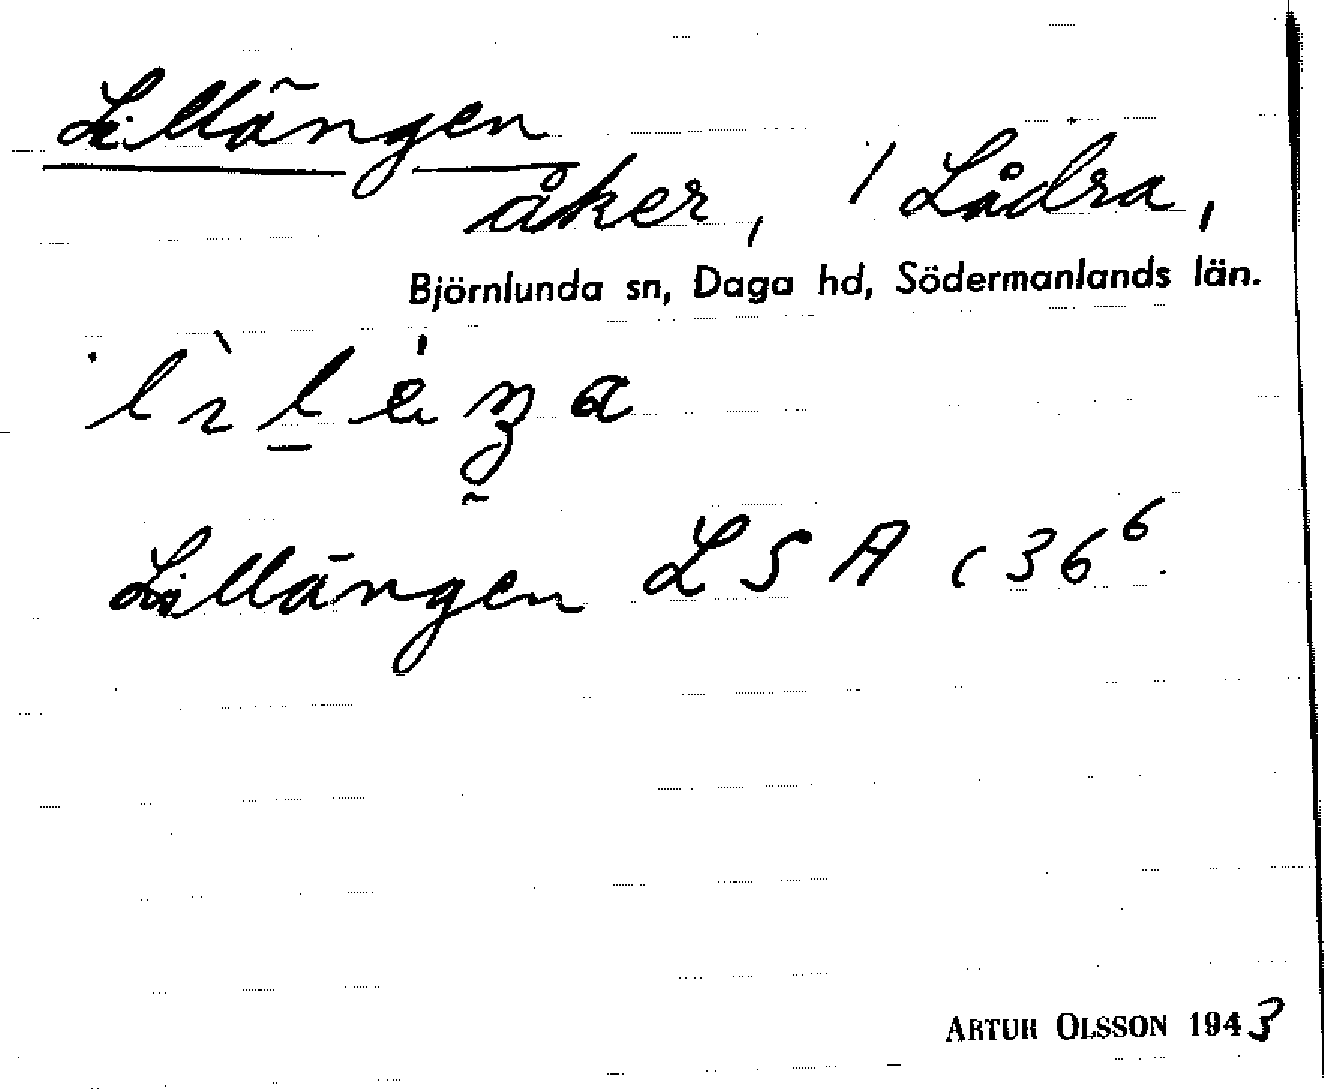 Lillängen
åker, / Lådra,
Björnlunda sn, Daga hd, Södermanlands län.
Lillängen LSA c 36⁶
ARTUR OLSSON 1943